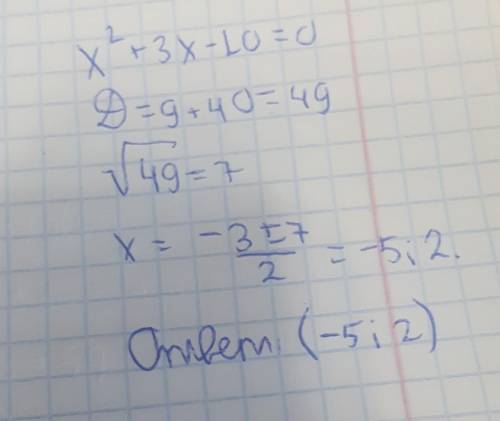 x² + 3x - 10 = 0
D = 9 + 40 = 49
√49 = 7
x = (-3 ± 7)/2 = -5; 2.
Ответ: (-5; 2)